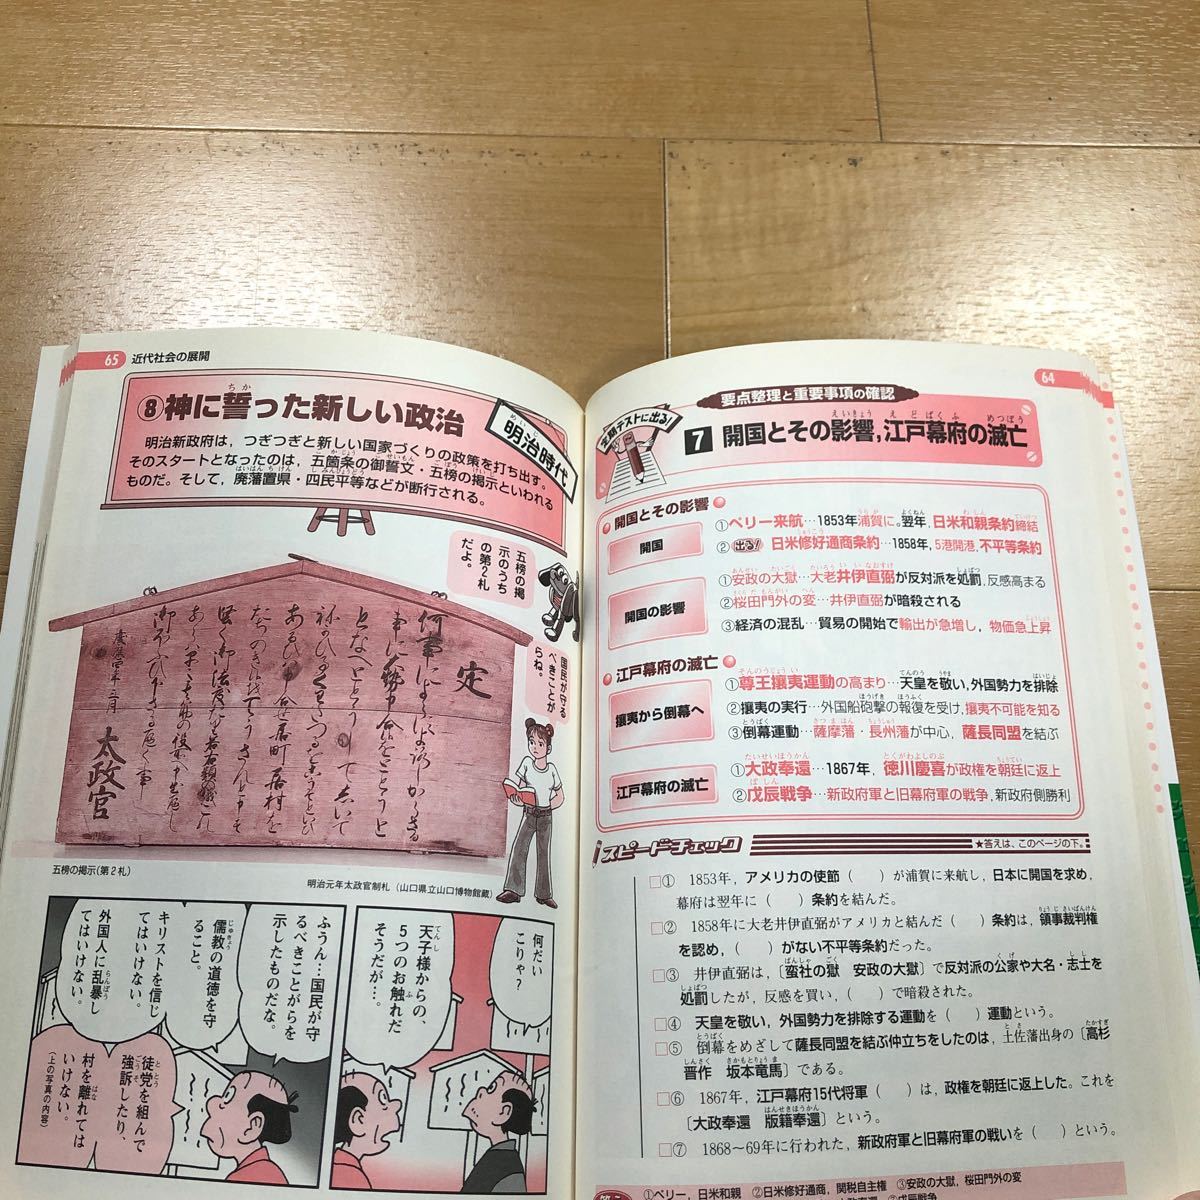 65 近代社会の展開
⑧神に誓った新しい政治
明治時代
明治新政府は,つぎつぎと新しい国家づくりの政策を打ち出す。
そのスタートとなったのは,五箇条の御誓文・五榜の掲示といわれる
ものだ。そして,廃藩置県・四民平等などが断行される。
五榜の掲
示のうち
の第2札
だよ。
国民が守る
べきことが
らね。
定
太政官
五榜の掲示(第2札)
明治元年太政官制札(山口県立山口博物館蔵)
何だい
こりゃ?
天子様からの、
5つのお触れだ
そうだが…。
ふうん…国民が守
るべきことがらを
示したものだな。
儒教の道徳を守
ること。
キリストを信じ
てはいけない。
外国人に乱暴し
てはいけない。
徒党を組んで
強訴したり、
村を離れては
いけない。
(上の写真の内容)
64
要点整理と重要事項の確認
定期テストに出る!
7 開国とその影響,江戸幕府の滅亡
開国とその影響
開国
①ペリー来航…1853年浦賀に。翌年,日米和親条約締結
②出る! 日米修好通商条約…1858年,5港開港,不平等条約
開国の影響
①安政の大獄…大老井伊直弼が反対派を処罰,反感高まる
②桜田門外の変…井伊直弼が暗殺される
③経済の混乱…貿易の開始で輸出が急増し,物価急上昇
江戸幕府の滅亡
攘夷から倒幕へ
①尊王攘夷運動の高まり…天皇を敬い,外国勢力を排除
②攘夷の実行…外国船砲撃の報復を受け,攘夷不可能を知る
③倒幕運動…薩摩藩・長州藩が中心,薩長同盟を結ぶ
江戸幕府の滅亡
①大政奉還…1867年,徳川慶喜が政権を朝廷に返上
②戊辰戦争…新政府軍と旧幕府軍の戦争,新政府側勝利
スピードチェック
★答えは、このページの下。
□① 1853年,アメリカの使節( )が浦賀に来航し,日本に開国を求め,
幕府は翌年に( )条約を結んだ。
□② 1858年に大老井伊直弼がアメリカと結んだ( )条約は,領事裁判権
を認め,( )がない不平等条約だった。
□③ 井伊直弼は,〔蛮社の獄 安政の大獄〕で反対派の公家や大名・志士を
処罰したが,反感を買い,( )で暗殺された。
□④ 天皇を敬い,外国勢力を排除する運動を( )運動という。
□⑤ 倒幕をめざして薩長同盟を結ぶ仲立ちをしたのは,土佐藩出身の〔高杉
晋作 坂本竜馬〕である。
□⑥ 1867年,江戸幕府15代将軍( )は,政権を朝廷に返上した。これを
〔大政奉還 版籍奉還〕という。
□⑦ 1868～69年に行われた,新政府軍と旧幕府軍の戦いを( )という。
①ペリー,日米和親 ②日米修好通商,関税自主権 ③安政の大獄,桜田門外の変